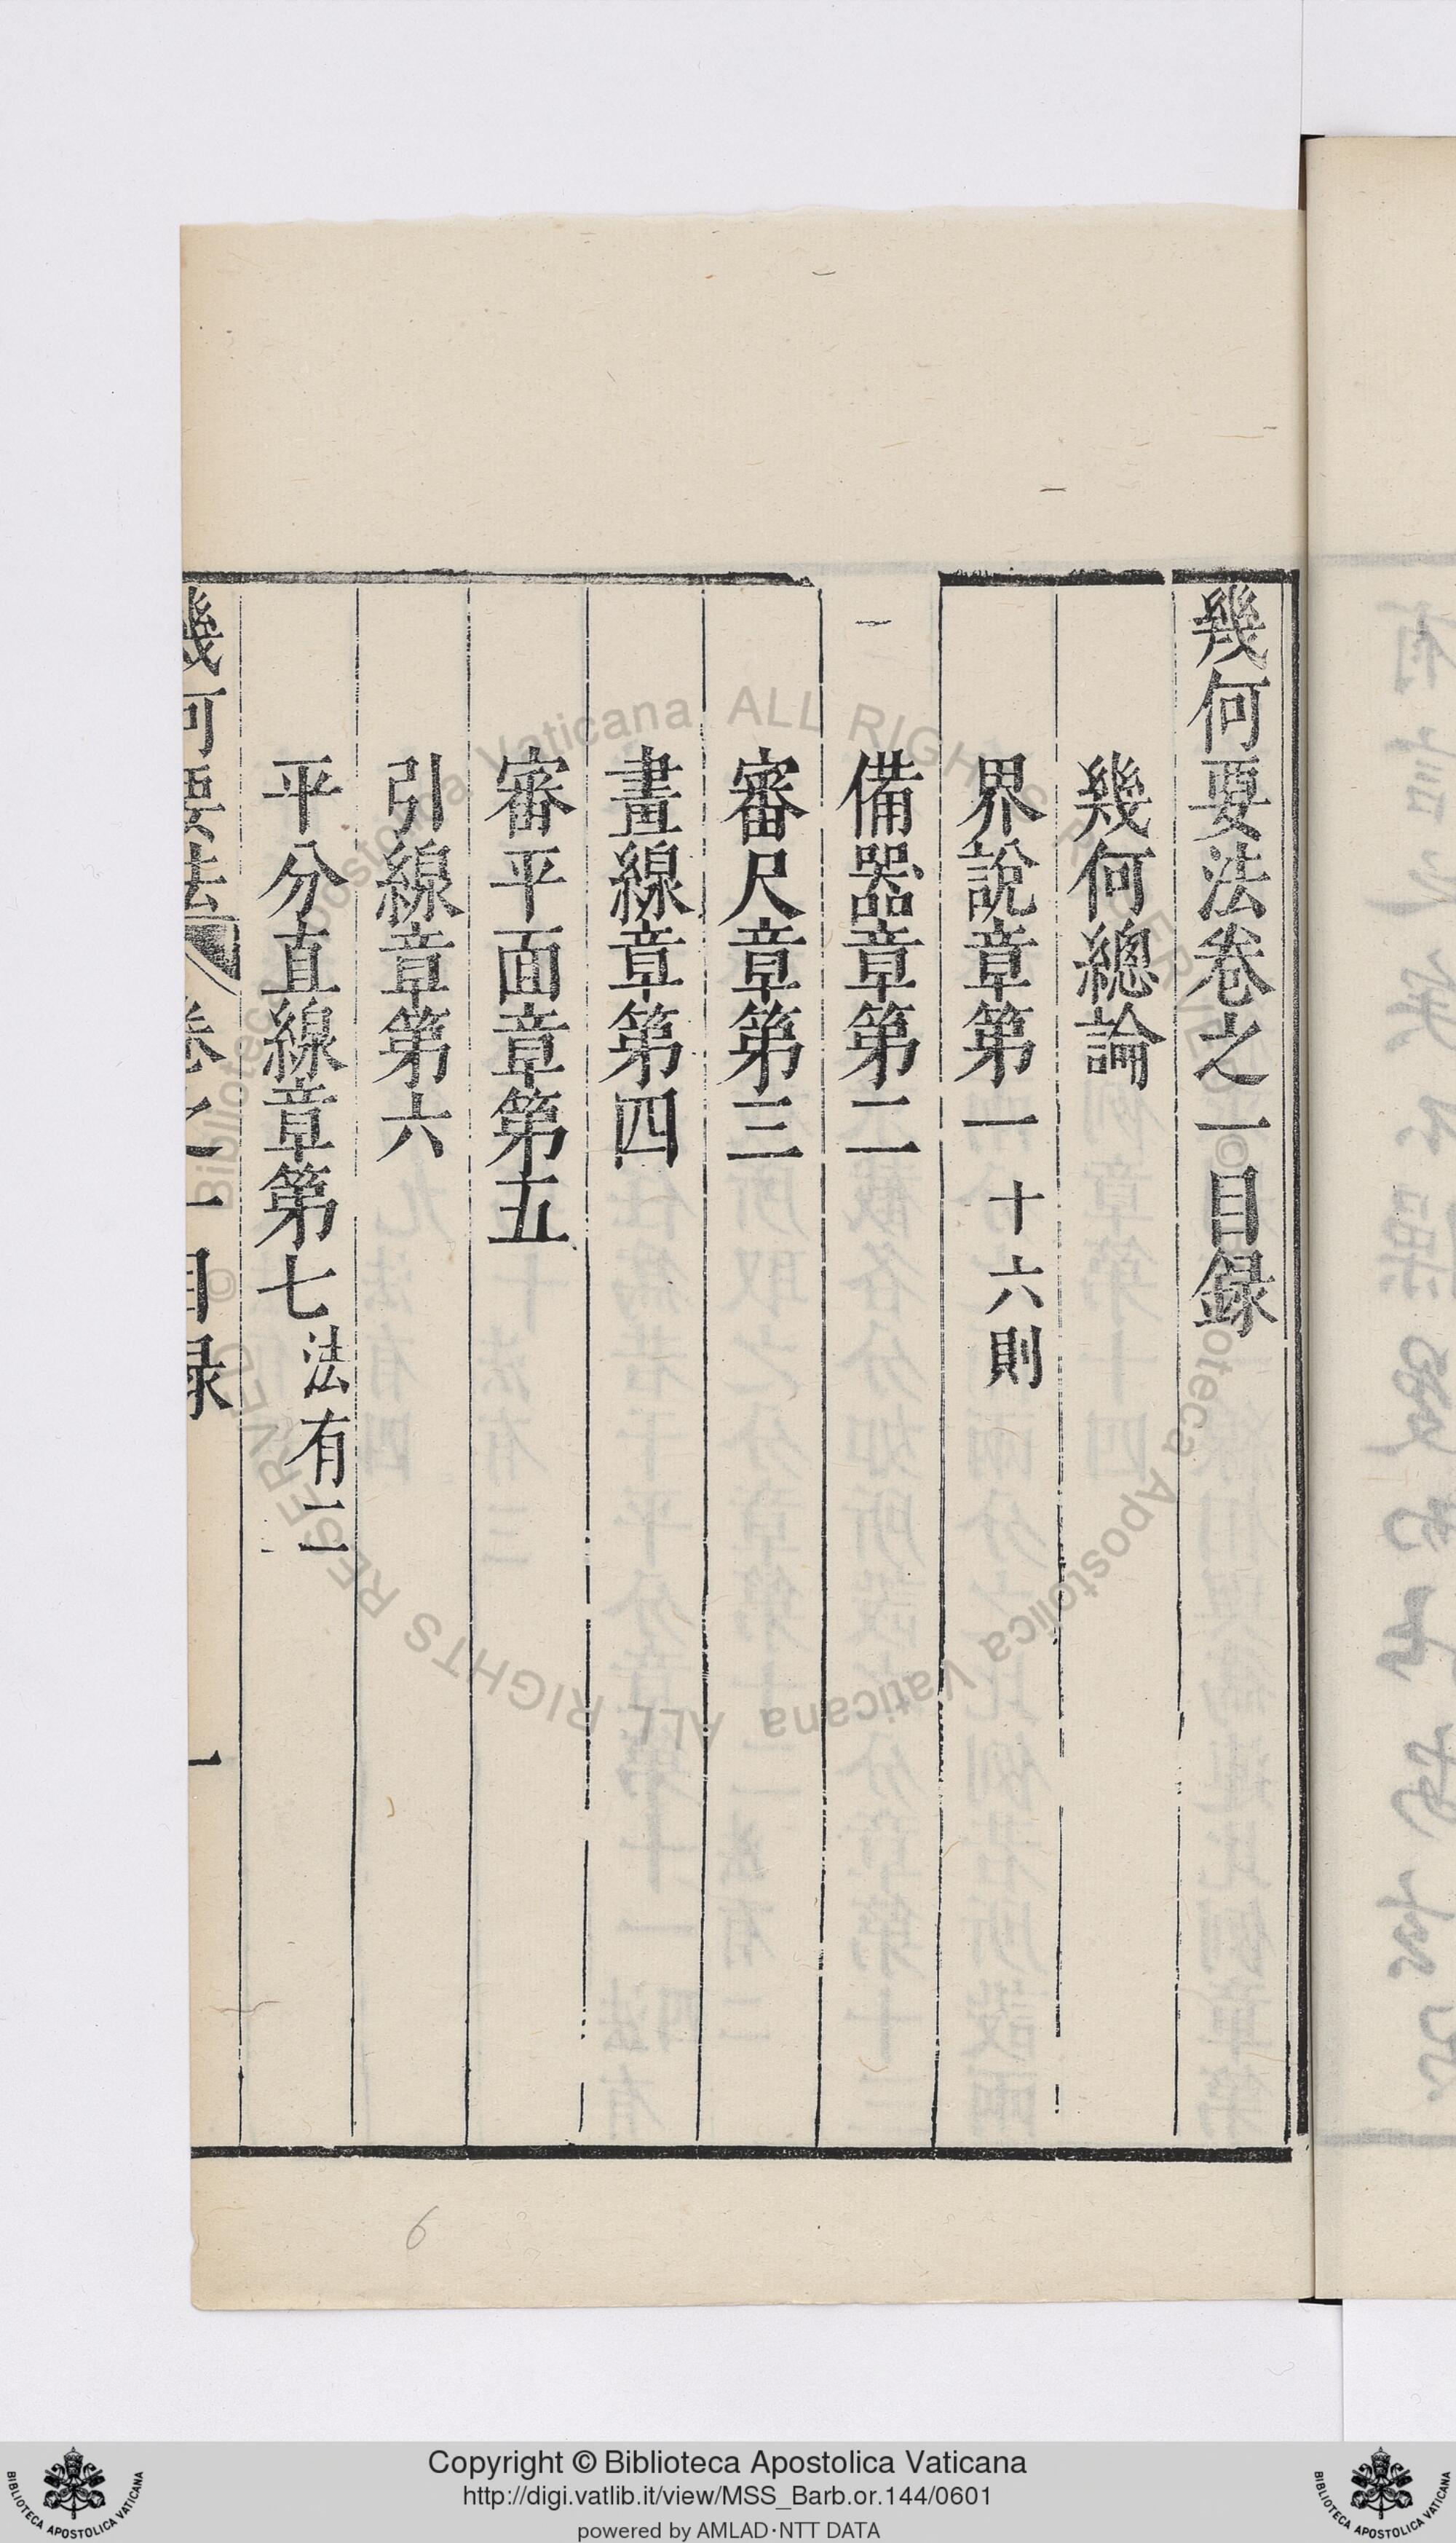 幾何要法卷之一目録
幾何總論
界說章第一 十六則
備器章第二
審尺章第三
畫線章第四
審平面章第五
引線章第六
平分直線章第七 法有二
幾何要法 卷之一目録 一
6
Copyright © Biblioteca Apostolica Vaticana
http://digi.vatlib.it/view/MSS_Barb.or.144/0601
powered by AMLAD·NTT DATA
BIBLIOTECA APOSTOLICA VATICANA
BIBLIOTECA APOSTOLICA VATICANA
© Biblioteca Apostolica Vaticana ALL RIGHTS RESERVED
© Biblioteca Apostolica Vaticana ALL RIGHTS RESERVED